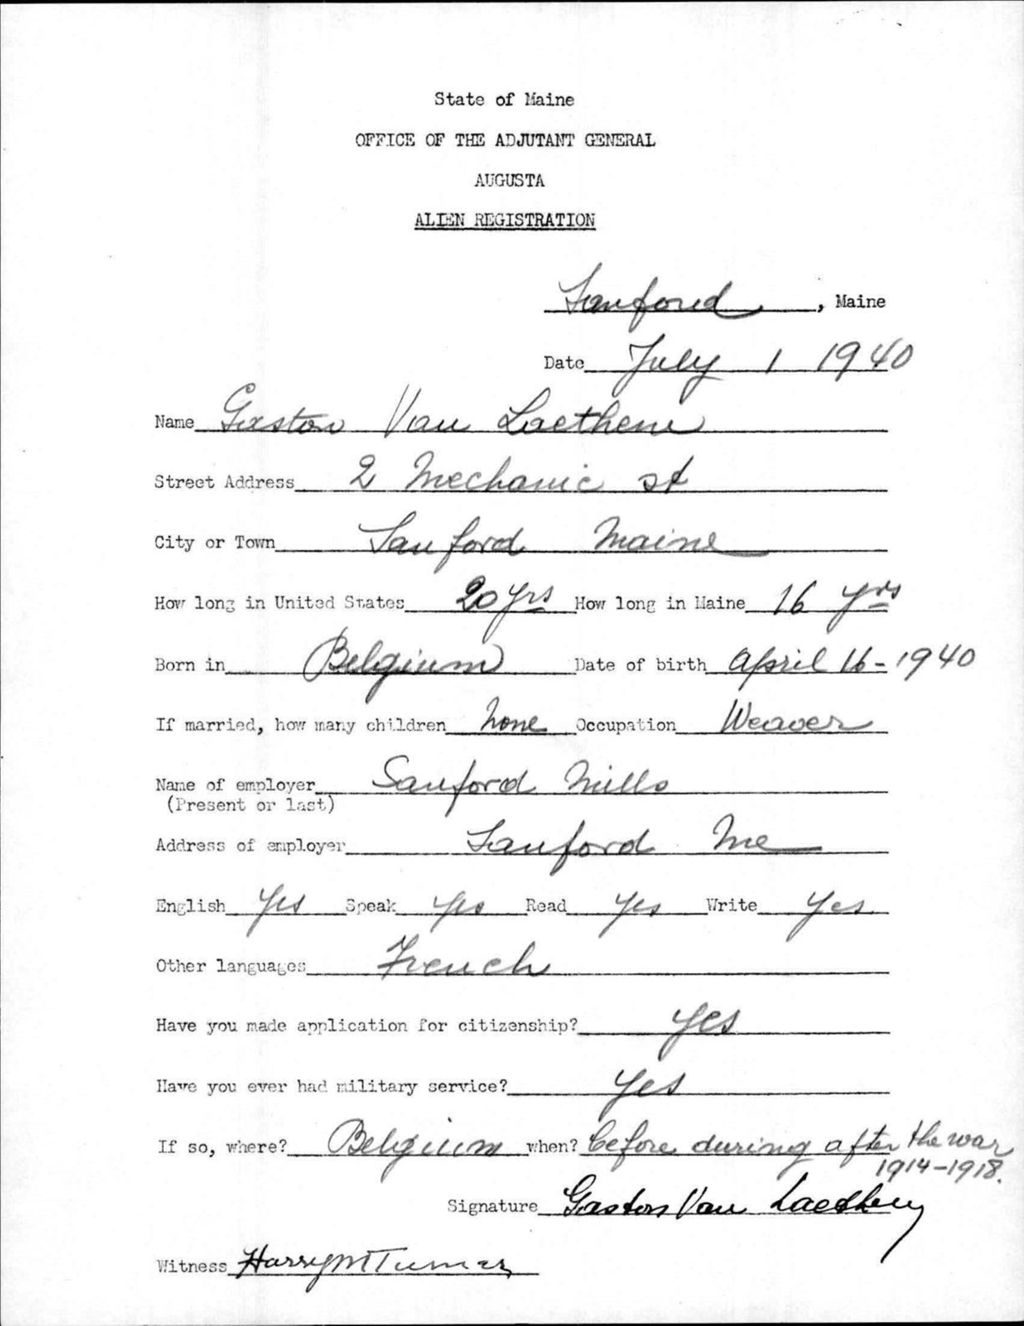 State of Maine
OFFICE OF THE ADJUTANT GENERAL
AUGUSTA
ALIEN REGISTRATION
Sanford, Maine
Date July 1 1940
Name Gaston Van Laethem
Street Address 2 Mechanic st
City or Town Sanford Maine
How long in United States 20 yrs How long in Maine 16 yrs
Born in Belgium Date of birth April 16-1940
If married, how many children none Occupation Weaver
Name of employer Sanford Mills
(Present or last)
Address of employer Sanford Me
English Yes Speak yes Read Yes Write Yes
Other languages French
Have you made application for citizenship? Yes
Have you ever had military service? Yes
If so, where? Belgium when? before during after the war
1914-1918.
Signature Gaston Van
Witness Harry M Turner